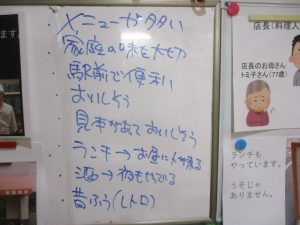 メニューが多い
家庭の味を大切
駅前で便利
おいしそう
見本があっておいしそう
ランチ→お昼に人が来る
酒→夜もやってる
昔ふう(レトロ)
店長(料理人
店長のお母さん
トミ子さん(77歳)
ランチも
やっています。
うそじゃ
ありません。